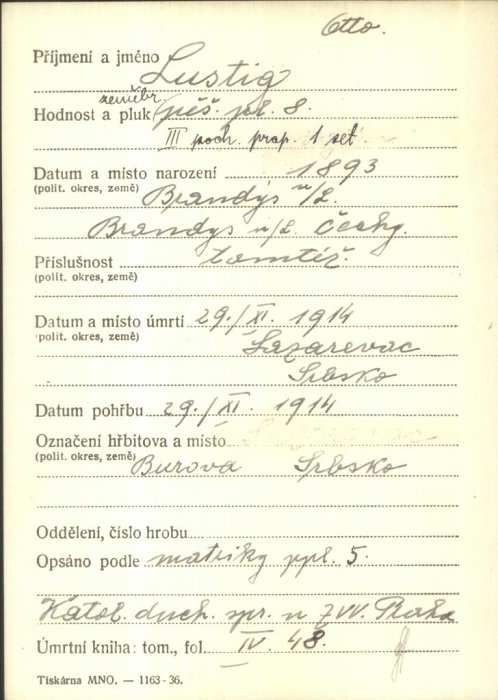 Otto.
Příjmení a jméno Lustig
zeměbr.
Hodnost a pluk pěš. pl. 8.
III poch. prap. 1 set.
Datum a místo narození 1893
(polit. okres, země) Brandýs n/L.
Brandys n/L. Čechy.
Příslušnost tamtéž.
(polit. okres, země)
Datum a místo úmrtí 29./XI. 1914
(polit. okres, země) Lazarevac
Srbsko
Datum pohřbu 29./XI. 1914
Označení hřbitova a místo
(polit. okres, země) Burova Srbsko
Oddělení, číslo hrobu
Opsáno podle matriky ppl. 5.
Katol. duch. spr. u ZVV. Praha
Úmrtní kniha: tom., fol. IV. 48.
Tiskárna MNO. — 1163-36.